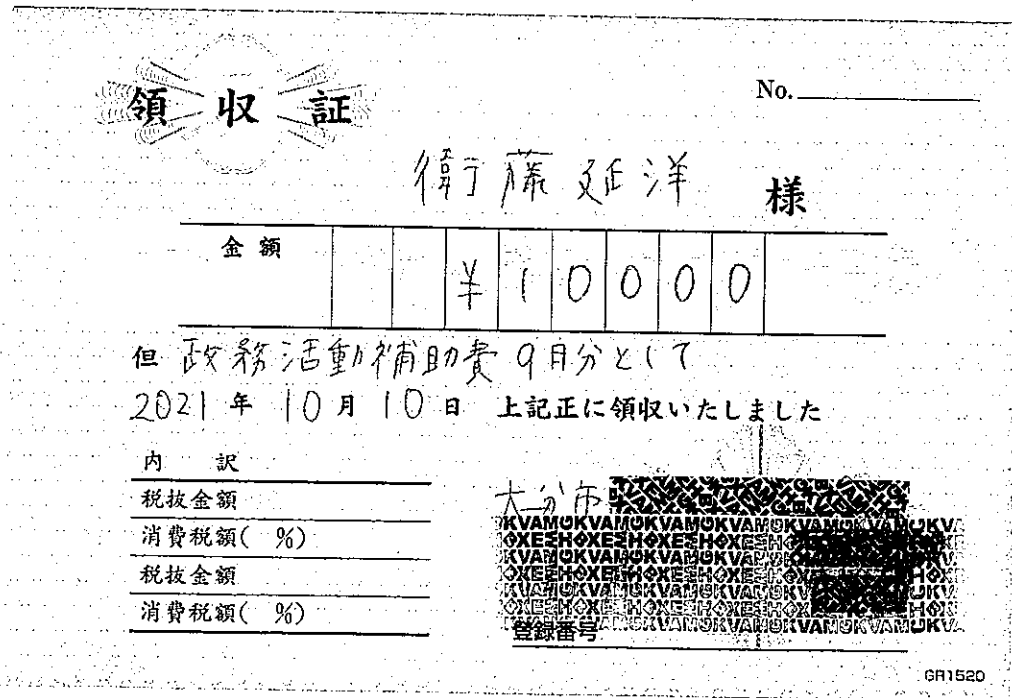 領収証
No.
衛藤延洋 様
金額 ¥10000
但 政務活動補助費 9月分として
2021年10月10日 上記正に領収いたしました
内 訳
税抜金額
消費税額( %)
税抜金額
消費税額( %)
大分市
登録番号
GR1520